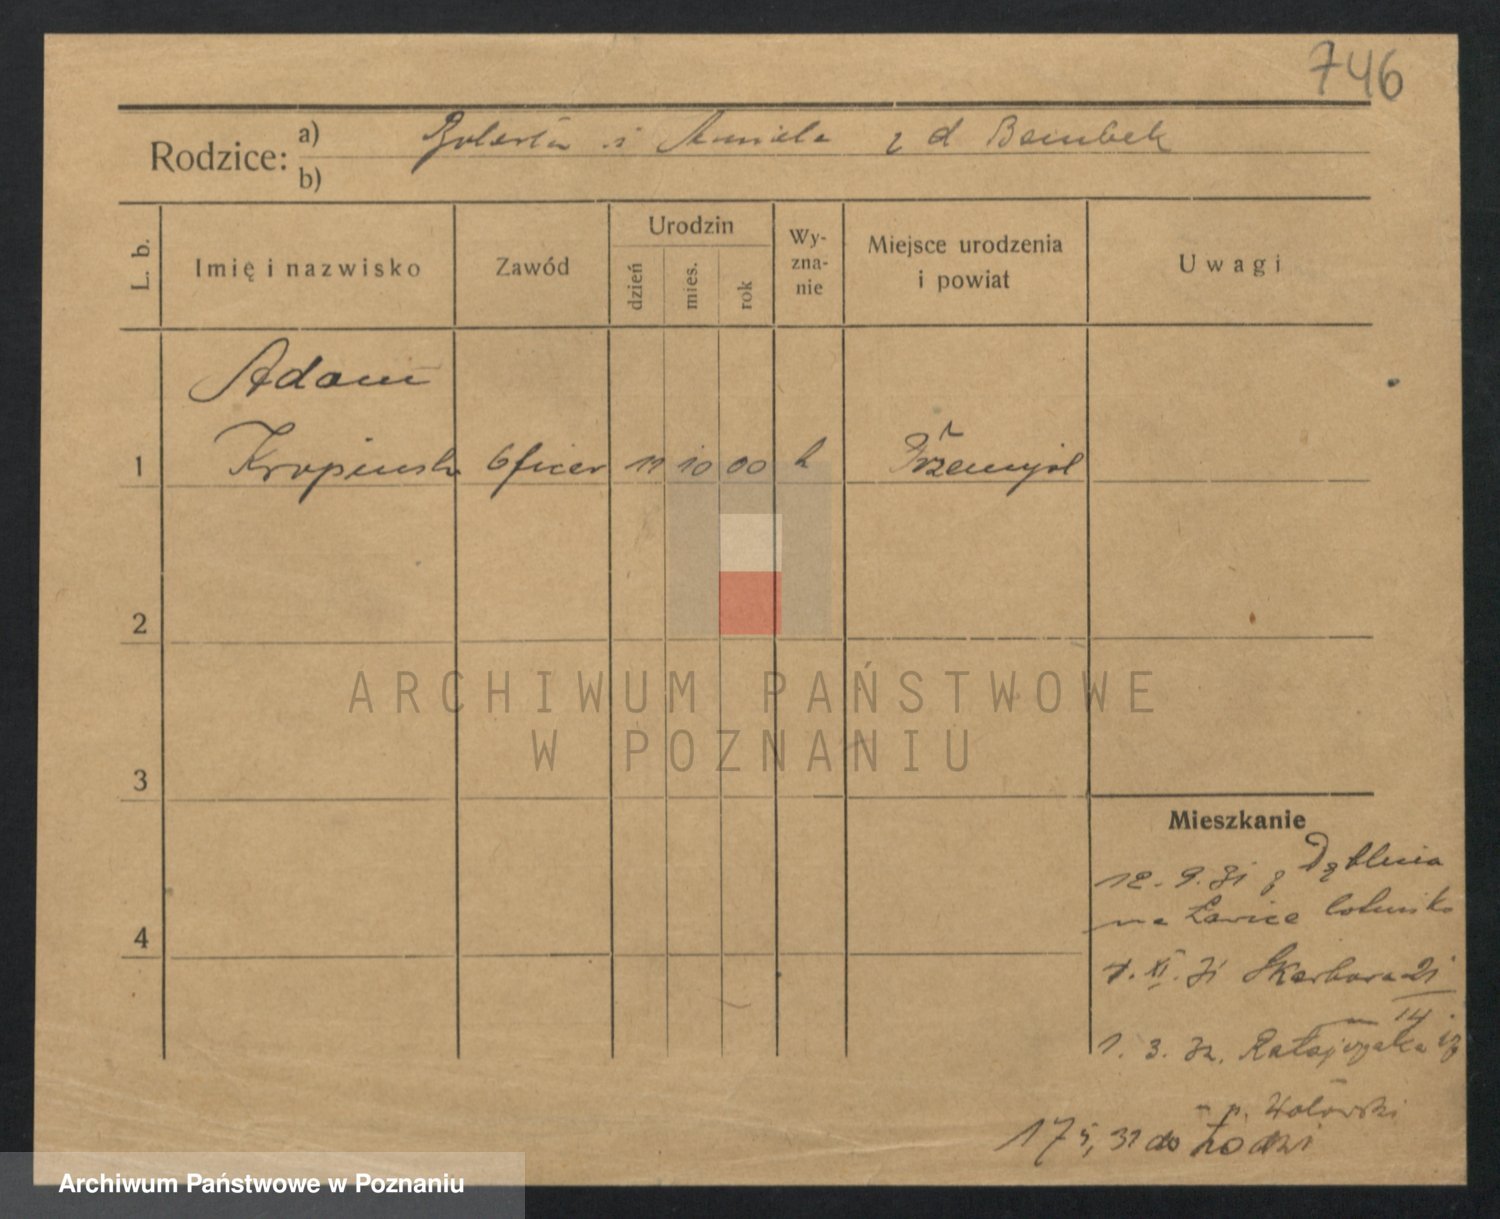 746
Rodzice: a) i Aniela z d Bembek
b)
L. b.
Imię i nazwisko
Zawód
Urodzin
dzień
mies.
rok
Wy-
zna-
nie
Miejsce urodzenia
i powiat
Uwagi
Adam
1 Kropinski Oficer 11 10 00 k Przemyśl
2
3
4
Mieszkanie
12. 9. 31 z Dęblina
na Ławice lotnisko
XI. 31 Skarbowa 21
14
1. 3. 32. Ratajczaka
p.
17 5, 32 do Łodzi
ARCHIWUM PAŃSTWOWE
W POZNANIU
Archiwum Państwowe w Poznaniu